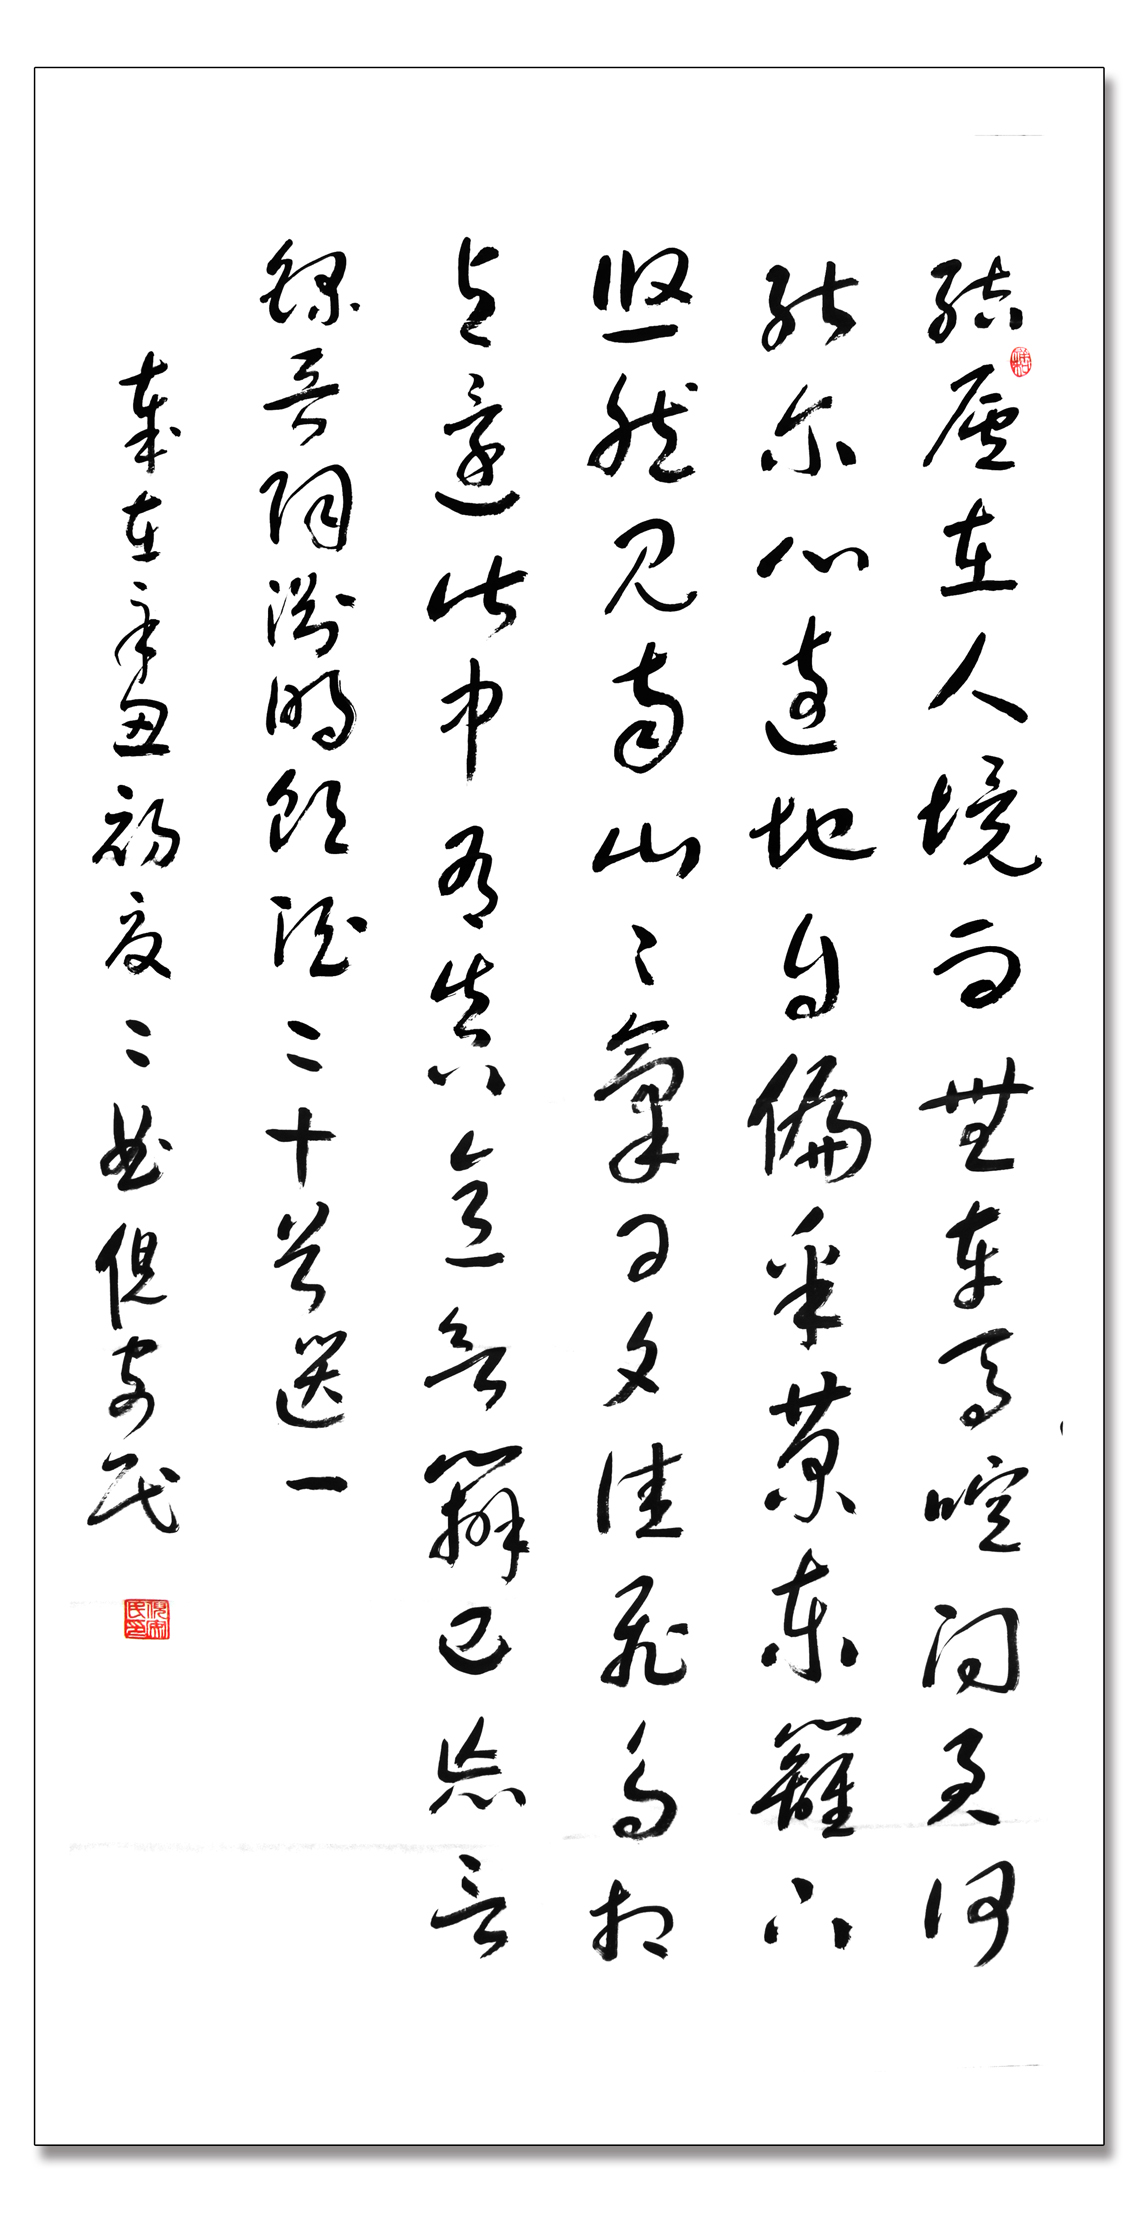 結廬在人境而無車馬喧問君何
能尔心遠地自偏采菊東籬下
悠然見南山〻氣日夕佳飛鳥相
与還此中有真意欲辯已忘言
録晋陶淵明飲酒二十首選一
歲在辛丑初夏 倪民